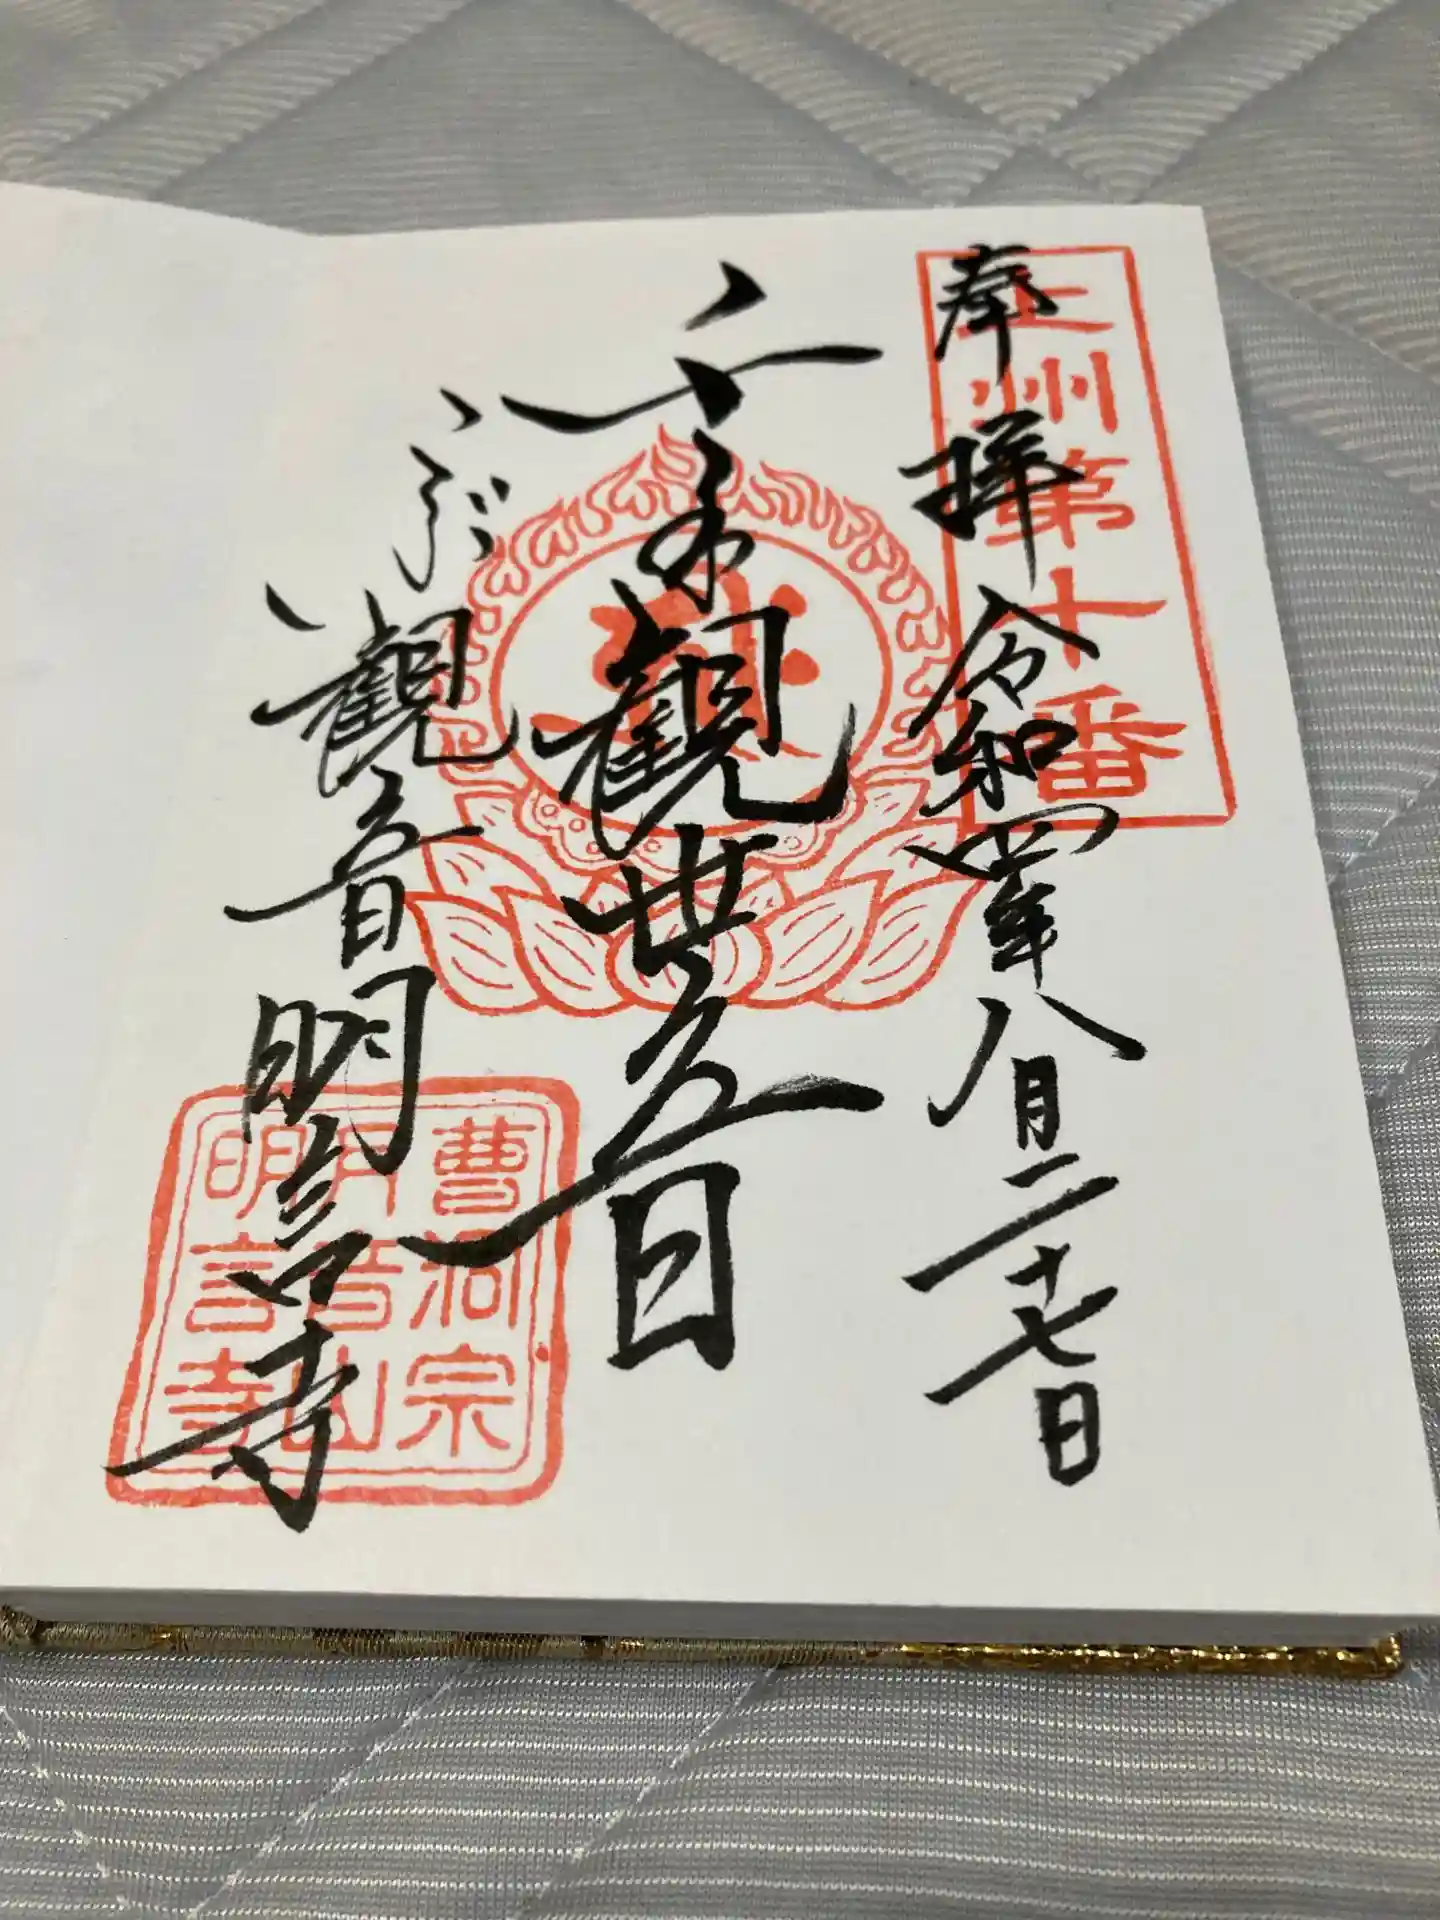 上州第十番
奉拝 令和四年八月二十七日
觀世音
觀音 明言寺
曹洞宗
月音山
明言寺